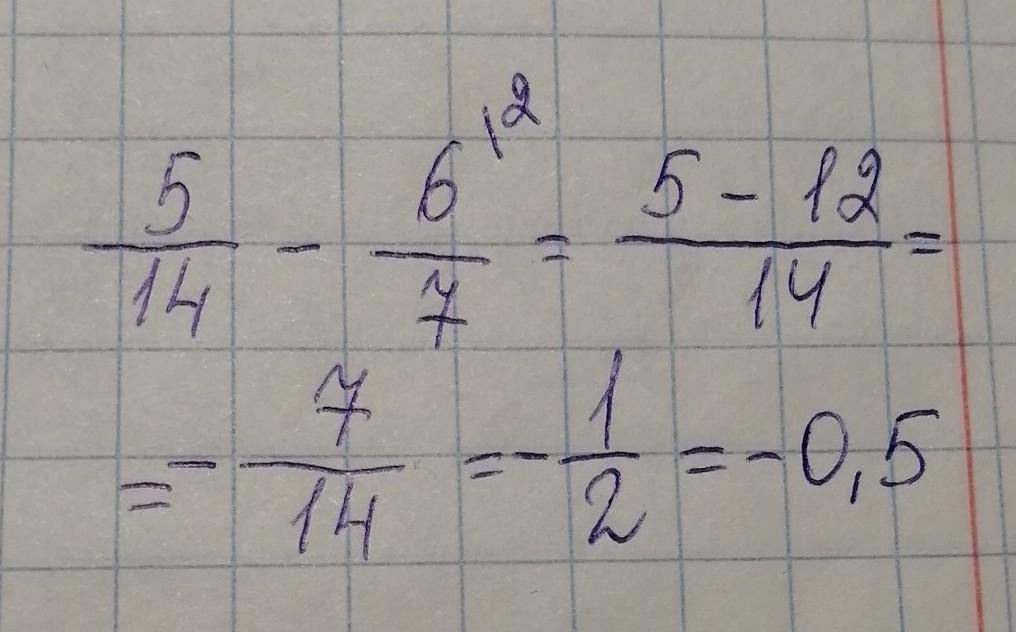 5/14 - 6/7 ^(\2) = (5 - 12)/14 =
= - 7/14 = - 1/2 = - 0,5